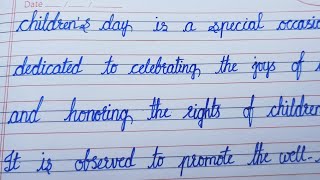 Date
children's day is a special occasio
dedicated to celebrating the joys of
and honoring the rights of children
It is observed to promote the well-